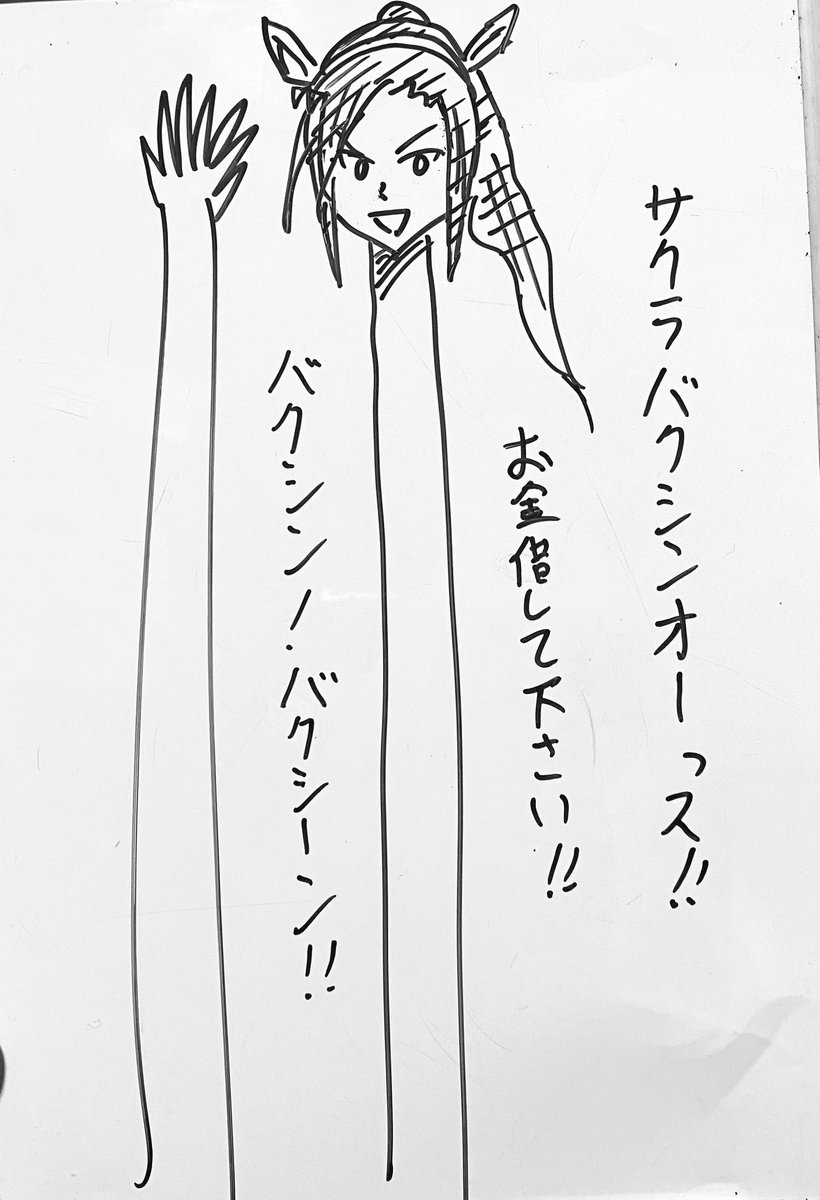 サクラバクシンオーっス!!
お金借して下さい!!
バクシン!バクシーン!!